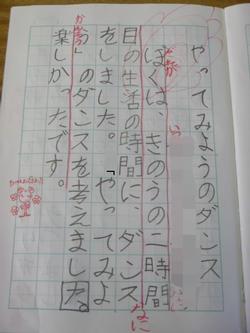 やってみようのダンス
いつ
だれが
ぼくは、きのうの二時間
目の生活の時間に、ダンス
なに
をしました。「やってみよ
う」のダンスを考えました。
かんそう
楽しかったです。